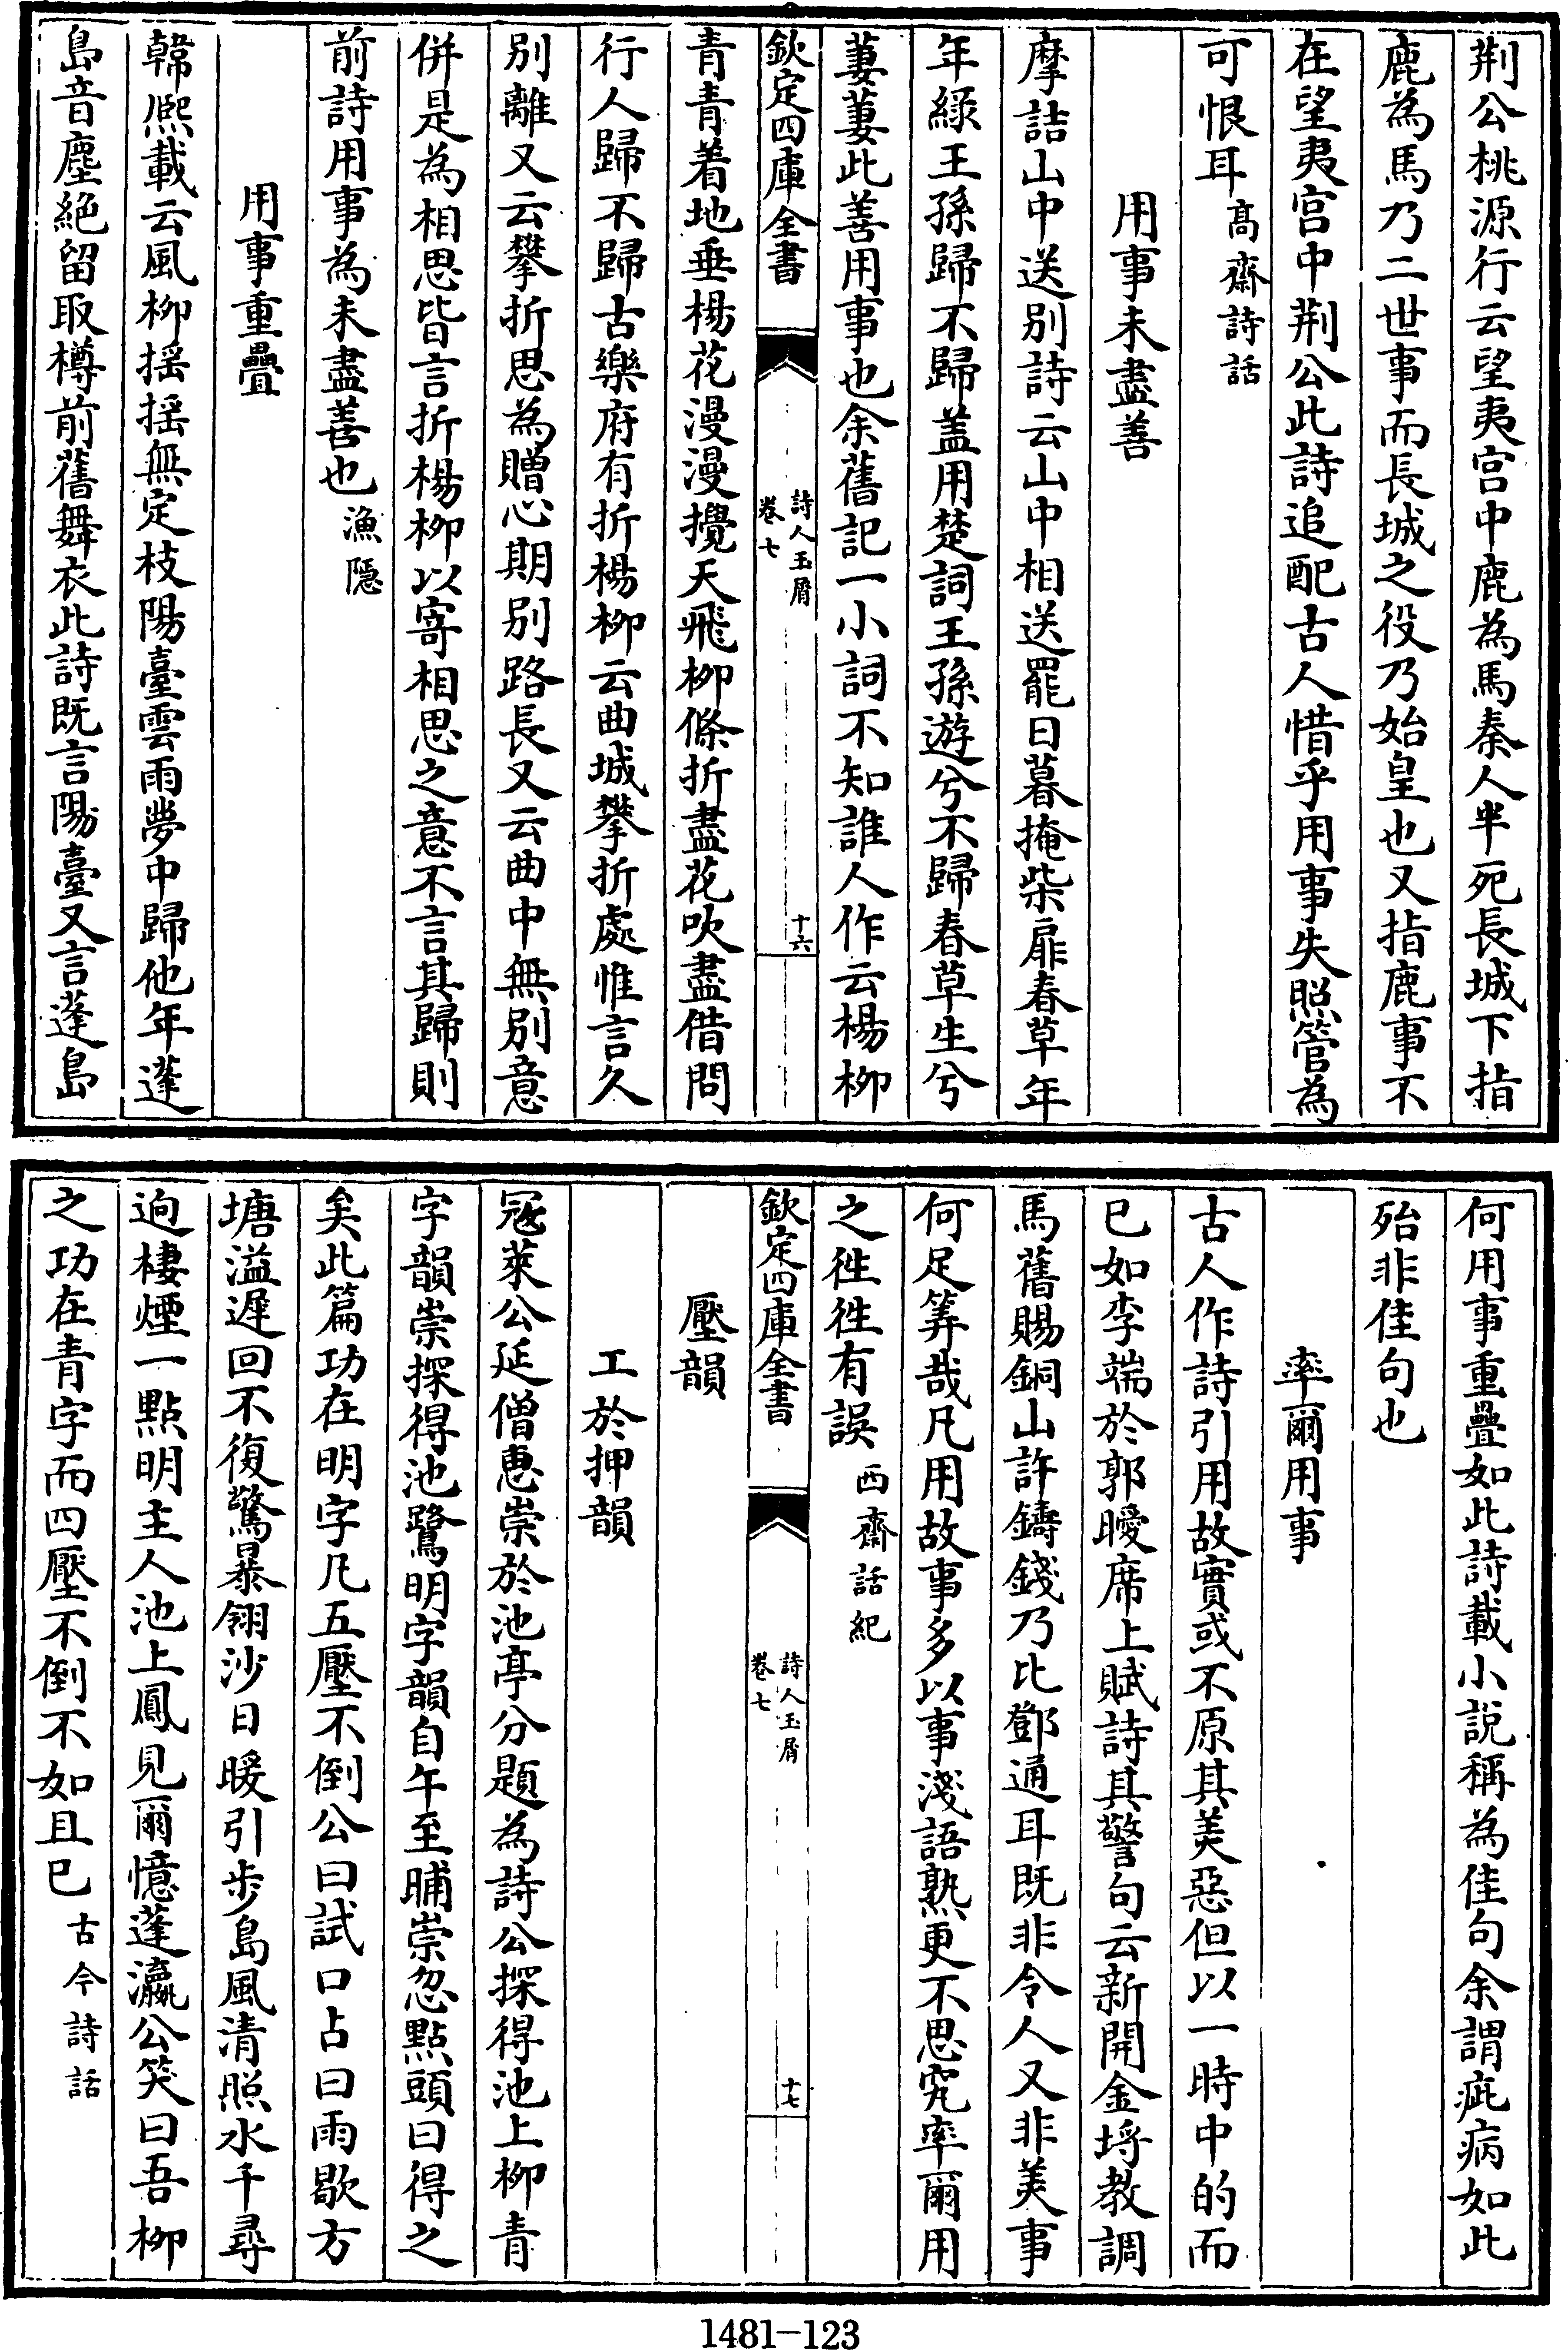 荆公桃源行云望夷宫中鹿為馬秦人半死長城下指
鹿為馬乃二世事而長城之役乃始皇也又指鹿事不
在望夷宫中荆公此詩追配古人惜乎用事失照管為
可恨耳高齋詩話
用事未盡善
摩詰山中送别詩云山中相送罷日暮掩柴扉春草年
年緑王孫歸不歸盖用楚詞王孫遊兮不歸春草生兮
萋萋此善用事也余舊記一小詞不知誰人作云楊柳
欽定四庫全書
詩人玉屑
卷七
十六
青青着地垂楊花漫漫攪天飛柳條折盡花吹盡借問
行人歸不歸古樂府有折楊柳云曲城攀折處惟言久
别離又云攀折思為贈心期别路長又云曲中無别意
併是為相思皆言折楊柳以寄相思之意不言其歸則
前詩用事為未盡善也漁隱
用事重疊
韓熙載云風柳揺揺無定枝陽臺雲雨夢中歸他年蓬
島音塵絶留取樽前舊舞衣此詩既言陽臺又言蓬島
何用事重疊如此詩載小說稱為佳句余謂疵病如此
殆非佳句也
率爾用事
古人作詩引用故實或不原其美惡但以一時中的而
已如李端於郭曖席上賦詩其警句云新開金埒教調
馬舊賜銅山許鑄錢乃比鄧通耳既非令人又非美事
何足筭哉凡用故事多以事淺語熟更不思究率爾用
之徃徃有誤西齋話紀
欽定四庫全書
詩人玉屑
卷七
十七
壓韻
工於押韻
冦萊公延僧恵崇於池亭分題為詩公探得池上柳青
字韻崇探得池鷺明字韻自午至晡崇忽點頭曰得之
矣此篇功在明字凡五壓不倒公曰試口占曰雨歇方
塘溢遲回不復驚暴翎沙日暖引步島風清照水千尋
逈棲煙一點明主人池上鳳見爾憶蓬瀛公笑曰吾柳
之功在青字而四壓不倒不如且已古今詩話
1481-123